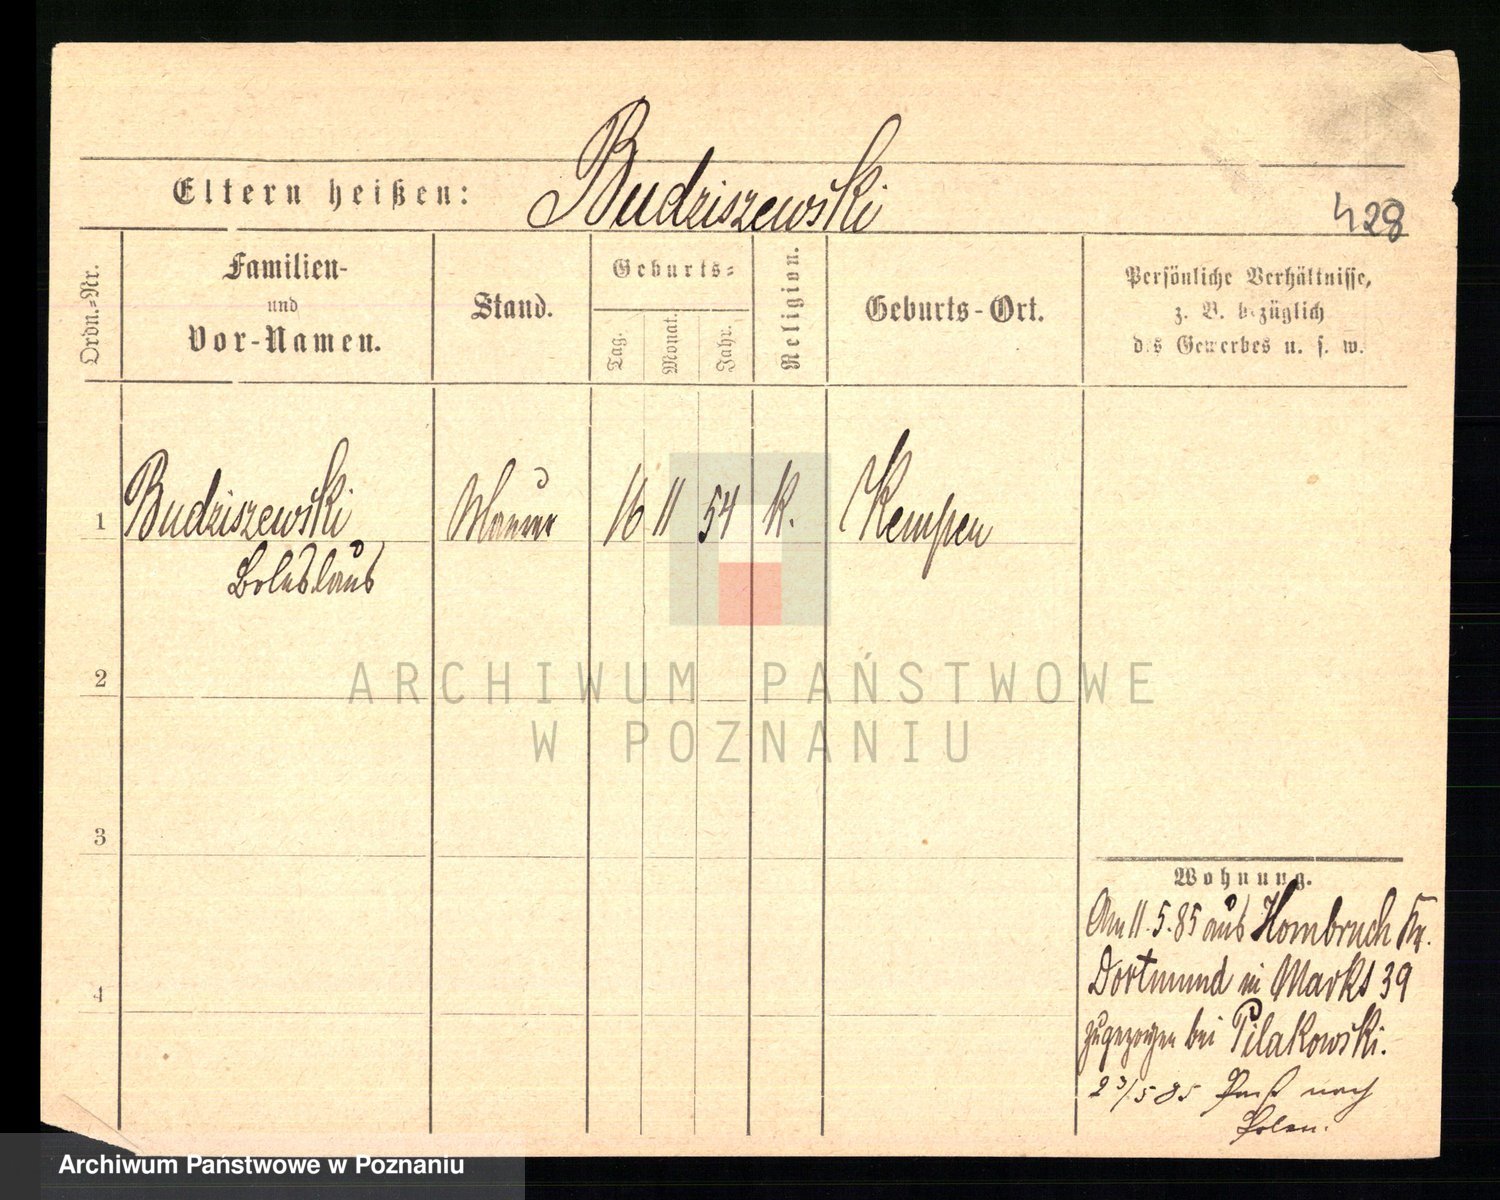 Eltern heißen: Budziszewski
428
Ordn.-Nr.
Familien-
und
Vor-Namen.
Stand.
Geburts-
Tag.
Monat.
Jahr.
Religion.
Geburts-Ort.
Persönliche Verhältnisse,
z. B. bezüglich
des Gewerbes u. s. w.
1 Budziszewski Maurer 16 11 54 K. Kempen
Boleslaus
2
3
4
Wohnung.
Am 11.5.85 aus Hombruch Kr.
Dortmund in Markt 39
zugezogen bei Pilakowski.
23/5 85 Paß nach
Polen.
ARCHIWUM PAŃSTWOWE
W POZNANIU
Archiwum Państwowe w Poznaniu